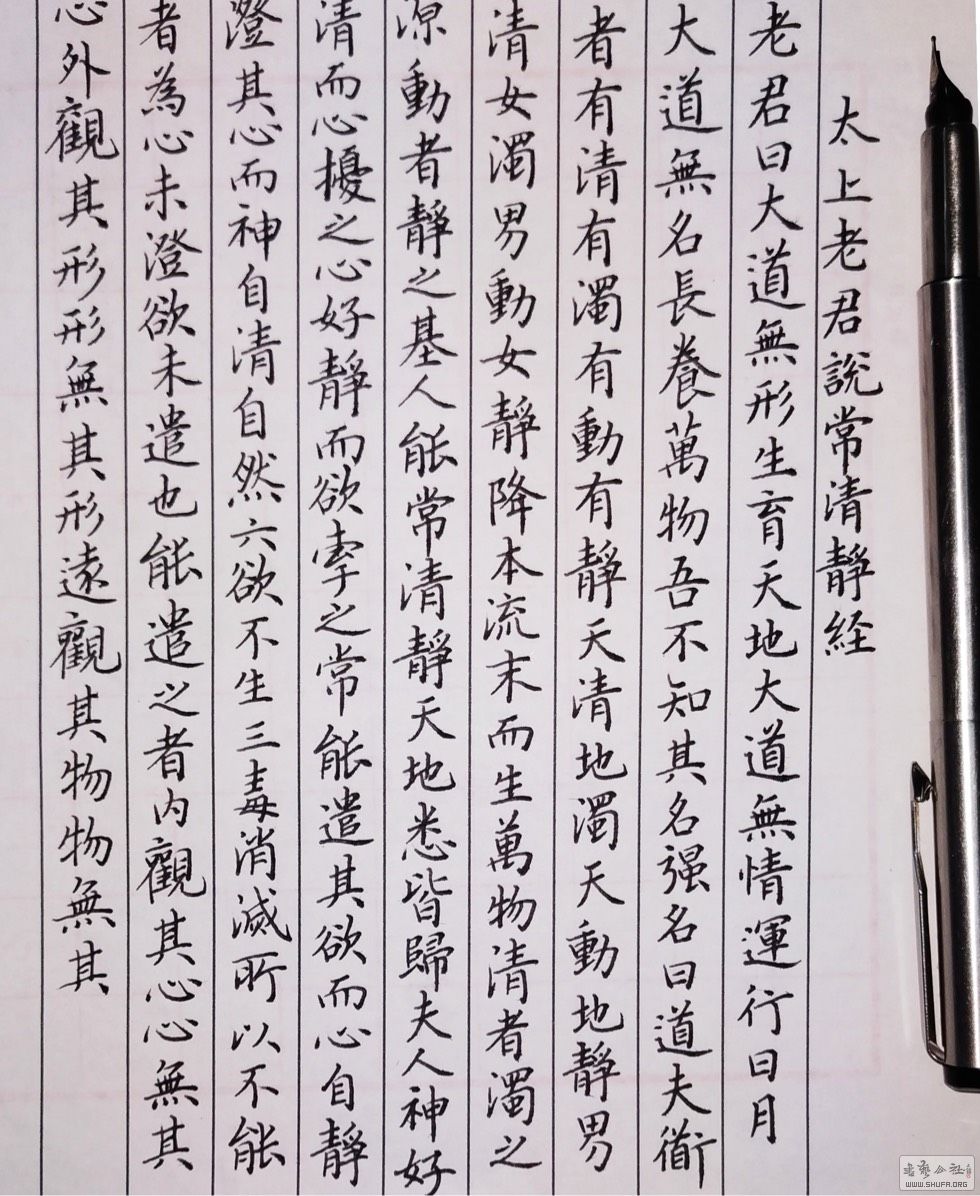 太上老君說常清靜経
老君曰大道無形生育天地大道無情運行日月
大道無名長養萬物吾不知其名强名曰道夫衜
者有清有濁有動有靜天清地濁天動地靜男
清女濁男動女靜降本流末而生萬物清者濁之
源動者靜之基人能常清靜天地悉皆歸夫人神好
清而心擾之心好靜而欲牽之常能遣其欲而心自靜
澄其心而神自清自然六欲不生三毒消滅所以不能
者為心未澄欲未遣也能遣之者内觀其心心無其
心外觀其形形無其形遠觀其物物無其
WWW.SHUFA.ORG